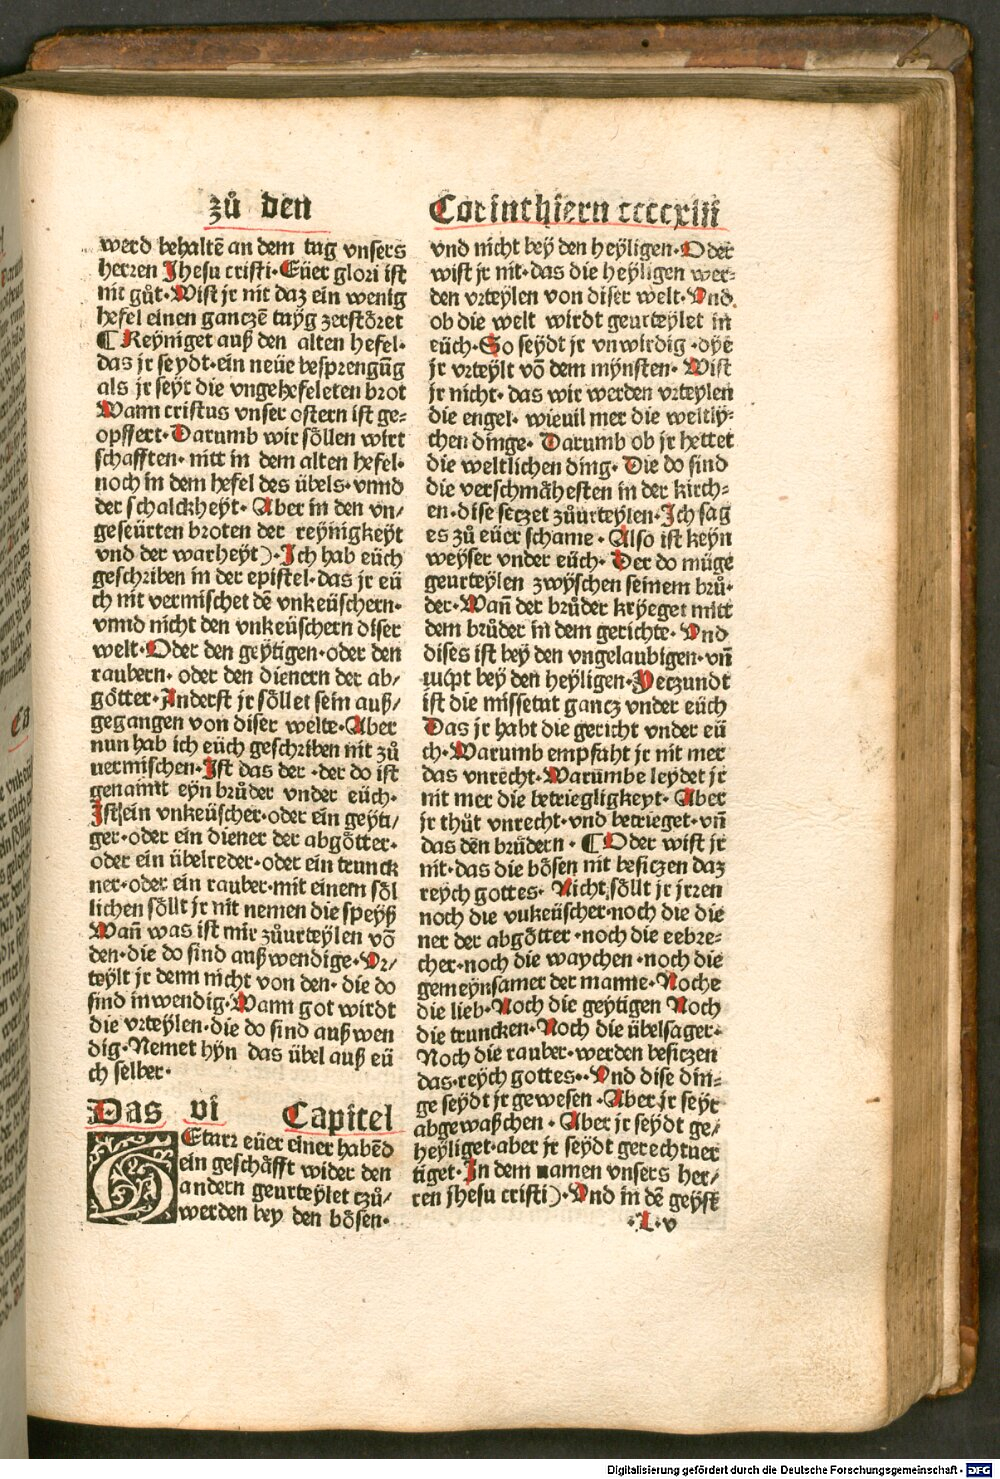 zů den
Corinthiern ccccxiii
werd behaltē an dem tag vnsers
herren Jhesu cristi. Eüer glori ist
nit gůt. Wist jr nit daz ein wenig
hefel einen ganczē tayg zerstöret
¶ Reyniget auß den alten hefel.
das jr seydt. ein neüe besprengūg
als jr seyt die vngehefeleten brot
Wann cristus vnser ostern ist ge-
opffert. Darumb wir söllen wirt
schafften. nitt in dem alten hefel.
noch in dem hefel des übels. vnnd
der schalckheyt. Aber in den vn/
geseürten broten der reynigkeyt
vnd der warheyt). Ich hab eüch
geschriben in der epistel. das jr eü
ch nit vermischet dē vnkeüschern.
vnnd nicht den vnkeüschern diser
welt. Oder den geytigen. oder den
raubern. oder den dienern der ab/
götter. Anderst jr söllet sein auß/
gegangen von diser welte. Aber
nun hab ich eüch geschriben nit zů
vermischen. Ist das der. der do ist
genamt eyn brůder vnder eüch.
Ist ein vnkeüscher. oder ein geyti/
ger. oder ein diener der abgötter.
oder ein übelreder. oder ein trunck
ner. oder ein rauber. mit einem söl
lichen söllt jr nit nemen die speyß
Wañ was ist mir zůurteylen vō
den. die do sind außwendige. Vr/
teylt jr denn nicht von den. die do
sind inwendig. Wann got wirdt
die vrteylen. die do sind außwen
dig. Nemet hyn das übel auß eü
ch selber.
Das vi Capitel
GEtarr eüer einer habend
ein geschäfft wider den
andern geurteylet czů/
werden bey den bösen.
vnd nicht bey den heyligen. Oder
wist jr nit. das die heyligen wer-
den vrteylen von diser welt. Vnd
ob die welt wirdt geurteylet in
eüch. So seydt jr vnwirdig. dye
jr vrteylt vō dem mynsten. Wist
jr nicht. das wir werden vrteylen
die engel. wieuil mer die weltly-
chen dinge. Darumb ob jr hettet
die weltlichen ding. Die do sind
die verschmähesten in der kirch-
en. dise seczet zůurteylen. Ich sag
es zů eüer schame. Also ist keyn
weyser vnder eüch. Der do müge
geurteylen zwyschen seinem brů-
der. Wañ der brůder kryeget mitt
dem brůder in dem gerichte. Vnd
dises ist bey den vngelaubigen. vñ
nicht bey den heyligen. Yerzundt
ist die missetat gancz vnder eüch
Das jr habt die gericht vnder eü
ch. Warumb empfaht jr nit mer
das vnrecht. Warumbe leydet jr
nit mer die betriegligkeyt. Aber
jr thüt vnrecht. vnd betrieget. vñ
das den brüdern. ¶ Oder wist jr
nit. das die bösen nit besiczen daz
reych gottes. Nicht söllt jr jrren
noch die vnkeüscher. noch die die
ner der abgötter. noch die eebre-
cher. noch die waychen. noch die
gemeynsamer der manne. Noche
die lieb. Noch die geytigen Noch
die truncken. Noch die übelsager.
Noch die rauber. werden besiczen
das. reych gottes.. Vnd dise din-
ge seydt jr gewesen. Aber jr seyt
abgewaßchen. Aber jr seydt ge/
heyliget. aber jr seydt gerechtuer
tiget. In dem namen vnsers her/
ren jhesu cristi). Vnd in dē geyst
.L.v
Digitalisierung gefördert durch die Deutsche Forschungsgemeinschaft - DFG